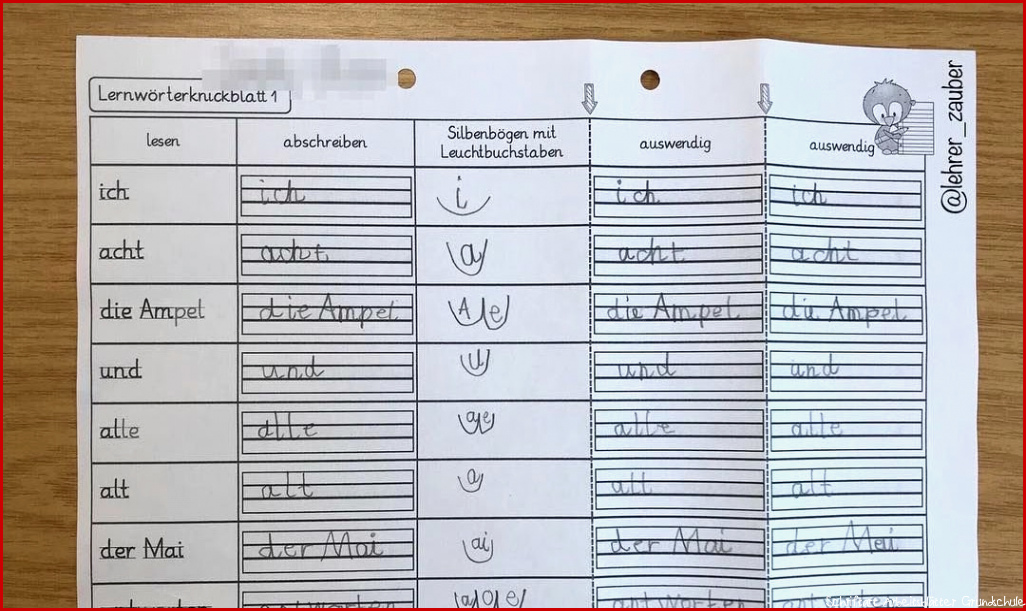 Lernwörterknickblatt 1
@lehrer_zauber
lesen abschreiben Silbenbögen mit Leuchtbuchstaben auswendig auswendig
ich ich i ich ich
acht acht a acht acht
die Ampel die Ampel A e die Ampel die Ampel
und und u und und
alle alle a e alle alle
alt alt a alt alt
der Mai der Mai ai der Mai der Mai
antworten antworten a o e antworten antworten
Grundschule